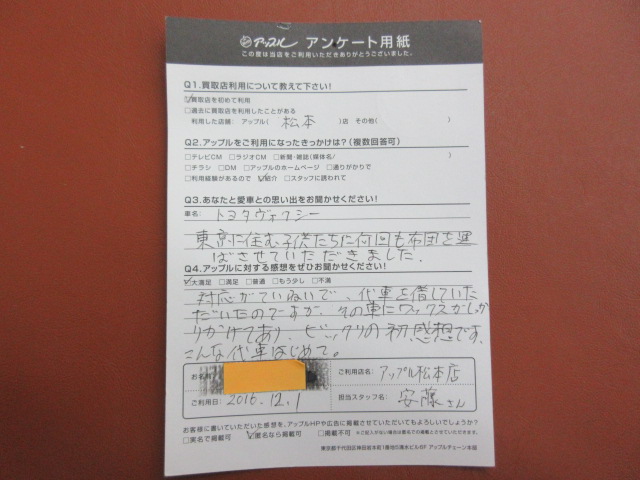 アップル アンケート用紙
この度は当店をご利用いただきありがとうございました。
Q1.買取店利用について教えて下さい!
☑買取店を初めて利用
□過去に買取店を利用したことがある
利用した店舗: アップル( 松本 )店 その他( )
Q2.アップルをご利用になったきっかけは?(複数回答可)
□テレビCM □ラジオCM □新聞・雑誌(媒体名/ )
□チラシ □DM □アップルのホームページ □通りがかりで
□利用経験があるので ☑紹介 □スタッフに誘われて
Q3.あなたと愛車との思い出をお聞かせください!
車名: トヨタヴォクシー
東京に住む子供たちに何回も布団を運
ばさせていただきました。
Q4.アップルに対する感想をぜひお聞かせください!
☑大満足 □満足 □普通 □もう少し □不満
対応がていねいで、代車を借していた
だいたのですが、その車にワックスがしっか
りかけてあり、ビックリの初感想です、
こんな代車はじめて。
お名前
ご利用店名: アップル松本店
ご利用日: 2016.12.1
担当スタッフ名: 安藤さん
お客様に書いていただいた感想を、アップルHPや広告に掲載させていただいてもよろしいでしょうか?
□実名で掲載可 ☑匿名なら掲載可 □掲載不可 ※ご記入がない場合は匿名での掲載とさせていただきます。
東京都千代田区神田岩本町1番地5清水ビル6F アップルチェーン本部